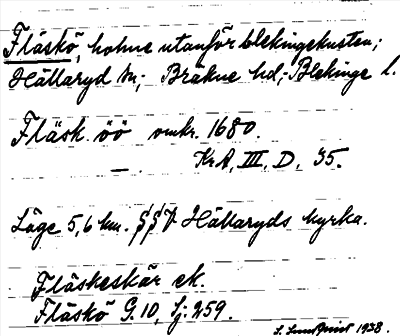 Fläskö, holme utanför blekingekusten;
Hällaryd sn; Bräkne hd; Blekinge l.
Fläsk öö omkr. 1680.
— KrA, III, D, 35.
Läge 5,6 km. SSV Hällaryds kyrka.
Fläskeskär ek.
Fläskö G. 10, Sj: 259.
S. Lundqvist 1938.